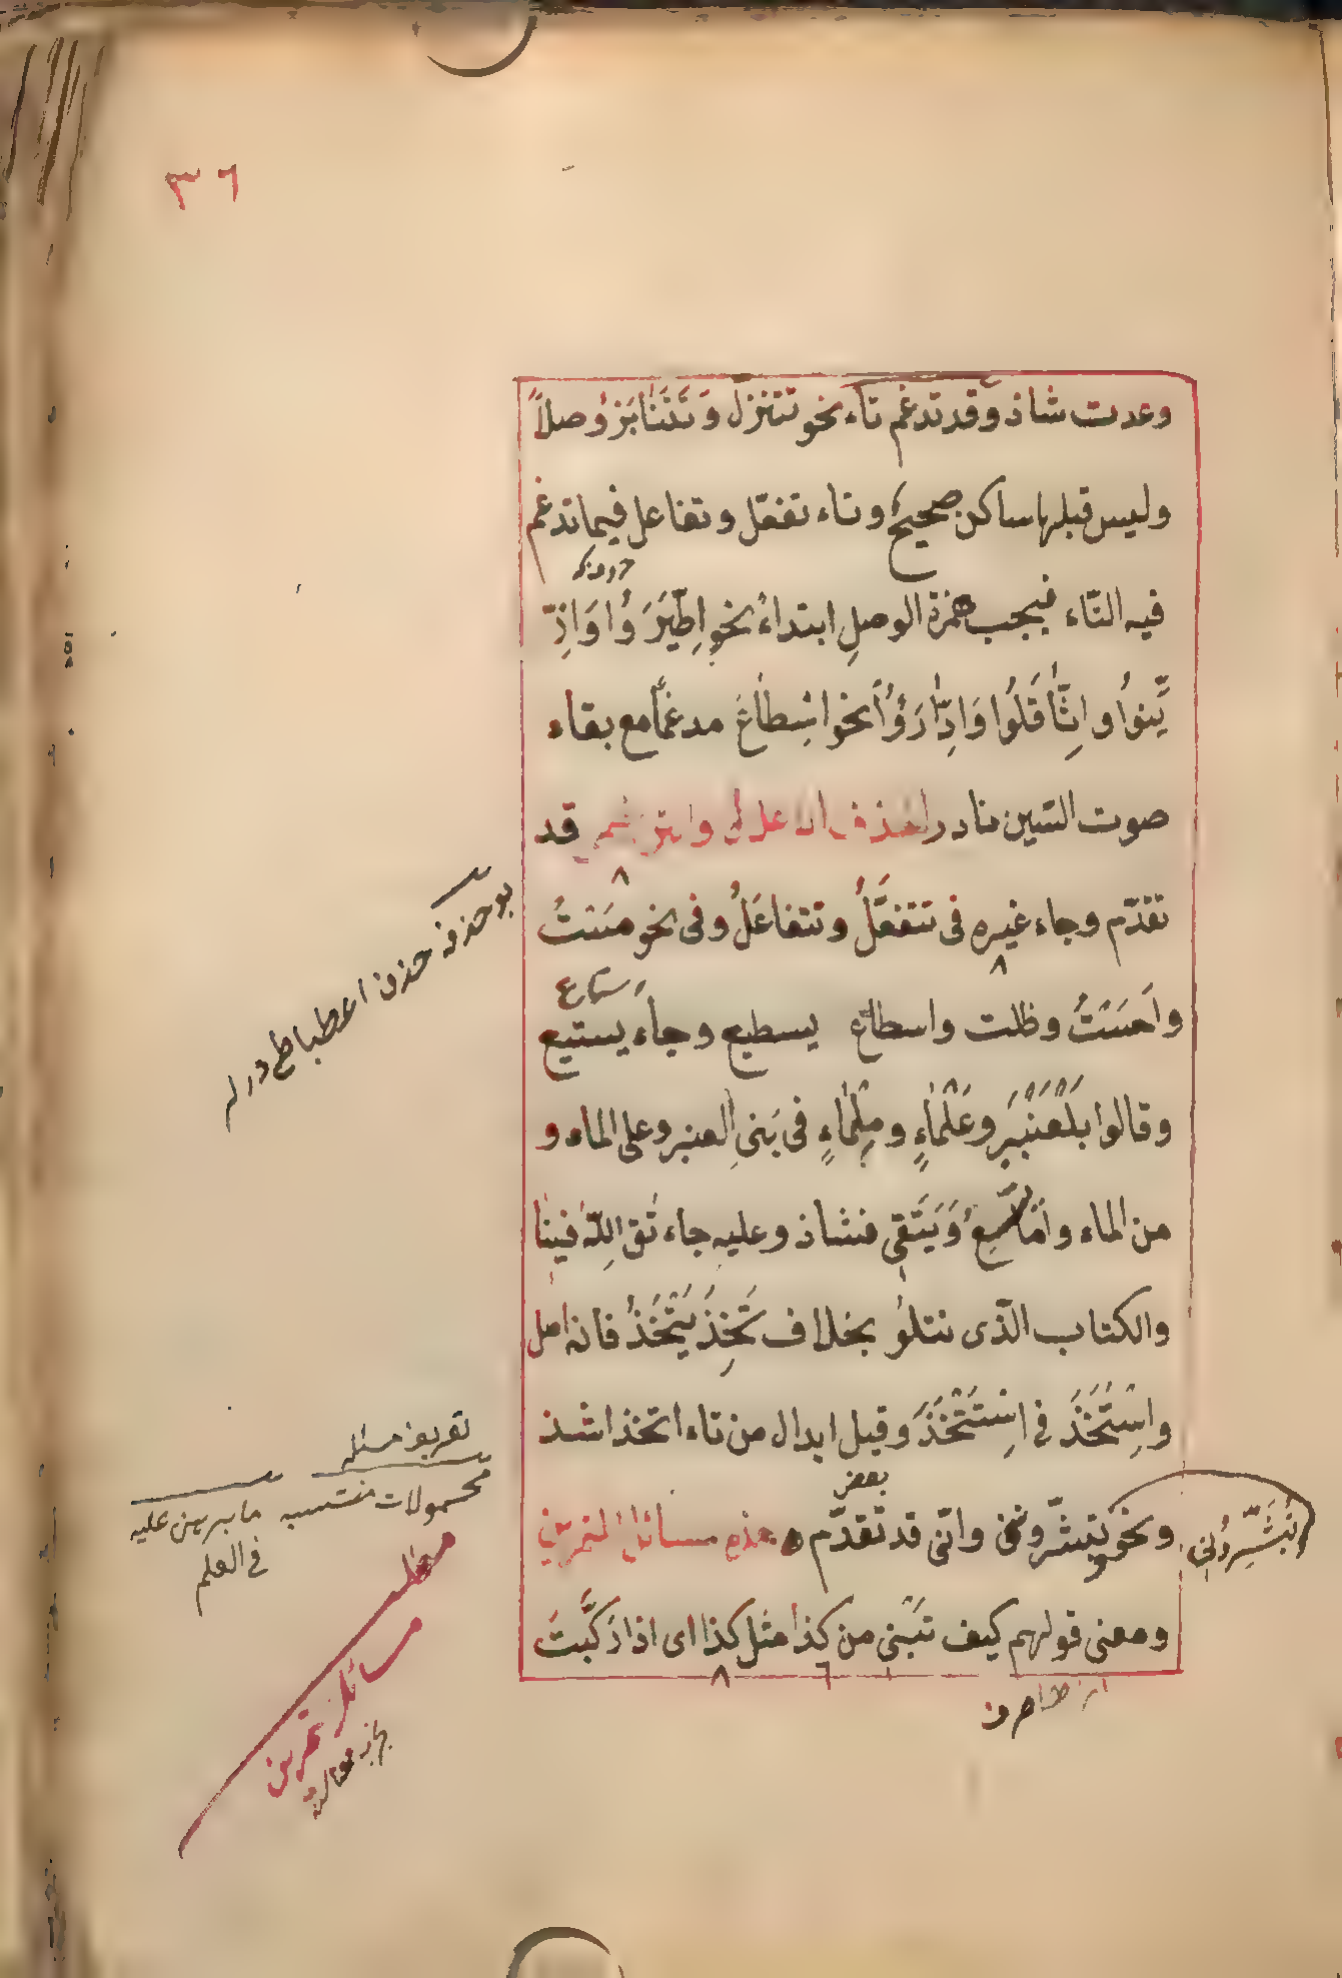 ٣٦
وعدت شاذ وقد تدغم تاء نحو تتنزل وَتَتَنَابَزُوصلاً
وليس قبلها ساكن صحيح وتاء تفعّل وتفاعل فيما تدغم
فيه التّاء فيجب همزة الوصلِ ابتداءً نحو اِطَّيَّرَوُا وَاذِّ
يَّنوُا واِثَّاقَلُوا وَاِدّارَؤُا نحو اسْطاعَ مدغماً مع بقاء
صوت السّين نادر الحذف الاعلالى والترخيمى قد
تقدّم وجاء غيره فى تتفَعَّلُ وتتفاعَلُ وفى نحو مَسْتُ
واَحَسْتُ وظلت واسطاع يسطيع وجاء يستيع
وقالوا بَلْعَنْبَرِ وعَلْمَاءِ ومِلْمَاءِ فى بَنىِ العنبر وعلى الماء و
من الماء وامّا يَتَسِعُ وَيَتَقى فشاذ وعليه جاء تَق اللّهَ فينا
والكتاب الّذى تتلوُ بخلاف تَخِذَ يَتْخَذُ فانه اصل
واِسْتَخَذَ فى اِسْتَتْخَذَ وقيل ابدال من تاء اتخذ اشذ
ونحو تبشّرونى وانّى قد تقدّم هذه مسائل التمرين
تُبَشِّرُونى
بعض
ومعنى قولهم كيف تَبْنى من كذا مثل كذا اى اذا رَكَّبتَ
بو حذفه حذف اعطباطى درلر
تعريف مسئله
محمولات منتسبه
ما يبرهن عليه
فى العلم
مطلب
مسائل تمرين